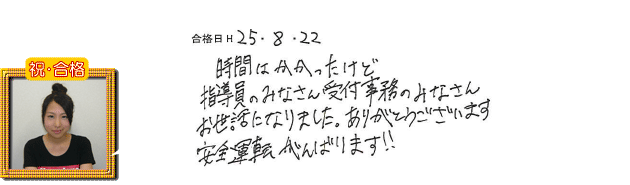 合格日 H 25・8・22
祝・合格
時間はかかったけど
指導員のみなさん受付事務のみなさん
お世話になりました。ありがとうございます
安全運転がんばります!!